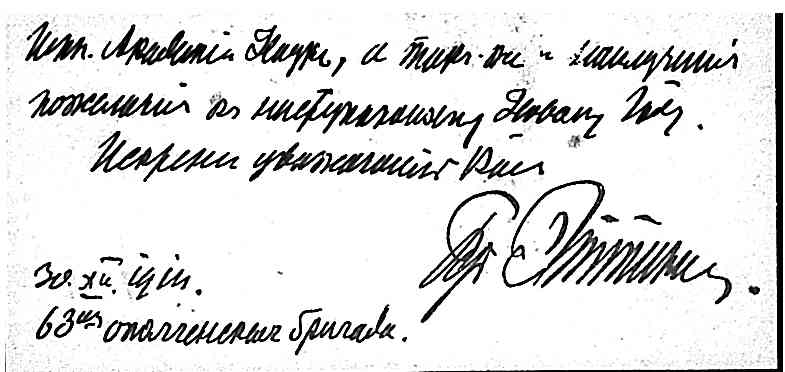 Имп. Академіи Наукъ, а также и наилучшія
пожеланія къ наступающему Новому Году.
Искренно уважающій Васъ
30. XII.
63ая ополченская бригада.